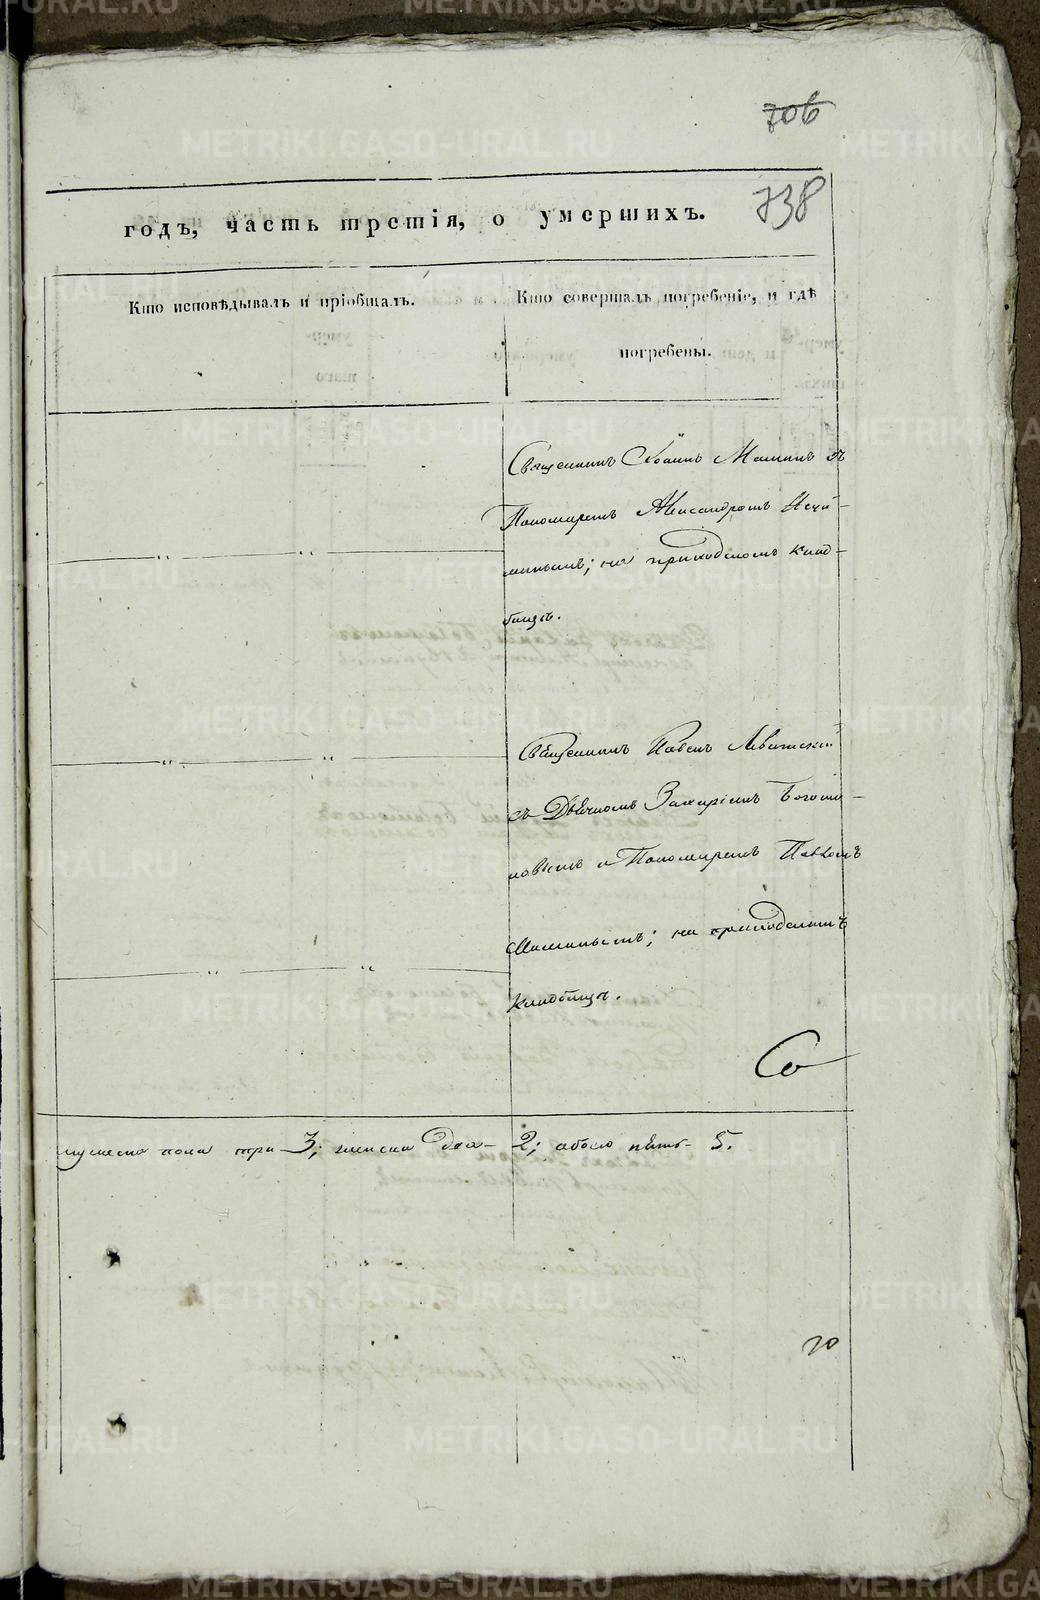 706
738
годъ, часть третія, о умершихъ.
Кто исповѣдывалъ и пріобщалъ.
Кто совершалъ погребеніе, и гдѣ
погребены.
Священникъ Іоаннъ съ
Пономаремъ Александромъ
на приходскомъ клад-
бищѣ.
Священникъ Павелъ Левитскій
съ Дьячкомъ Захаріемъ Богомо-
ловымъ и Пономаремъ Павломъ
на приходскомъ
кладбищѣ.
мужеска пола три 3; женска два 2; обоего пять 5.